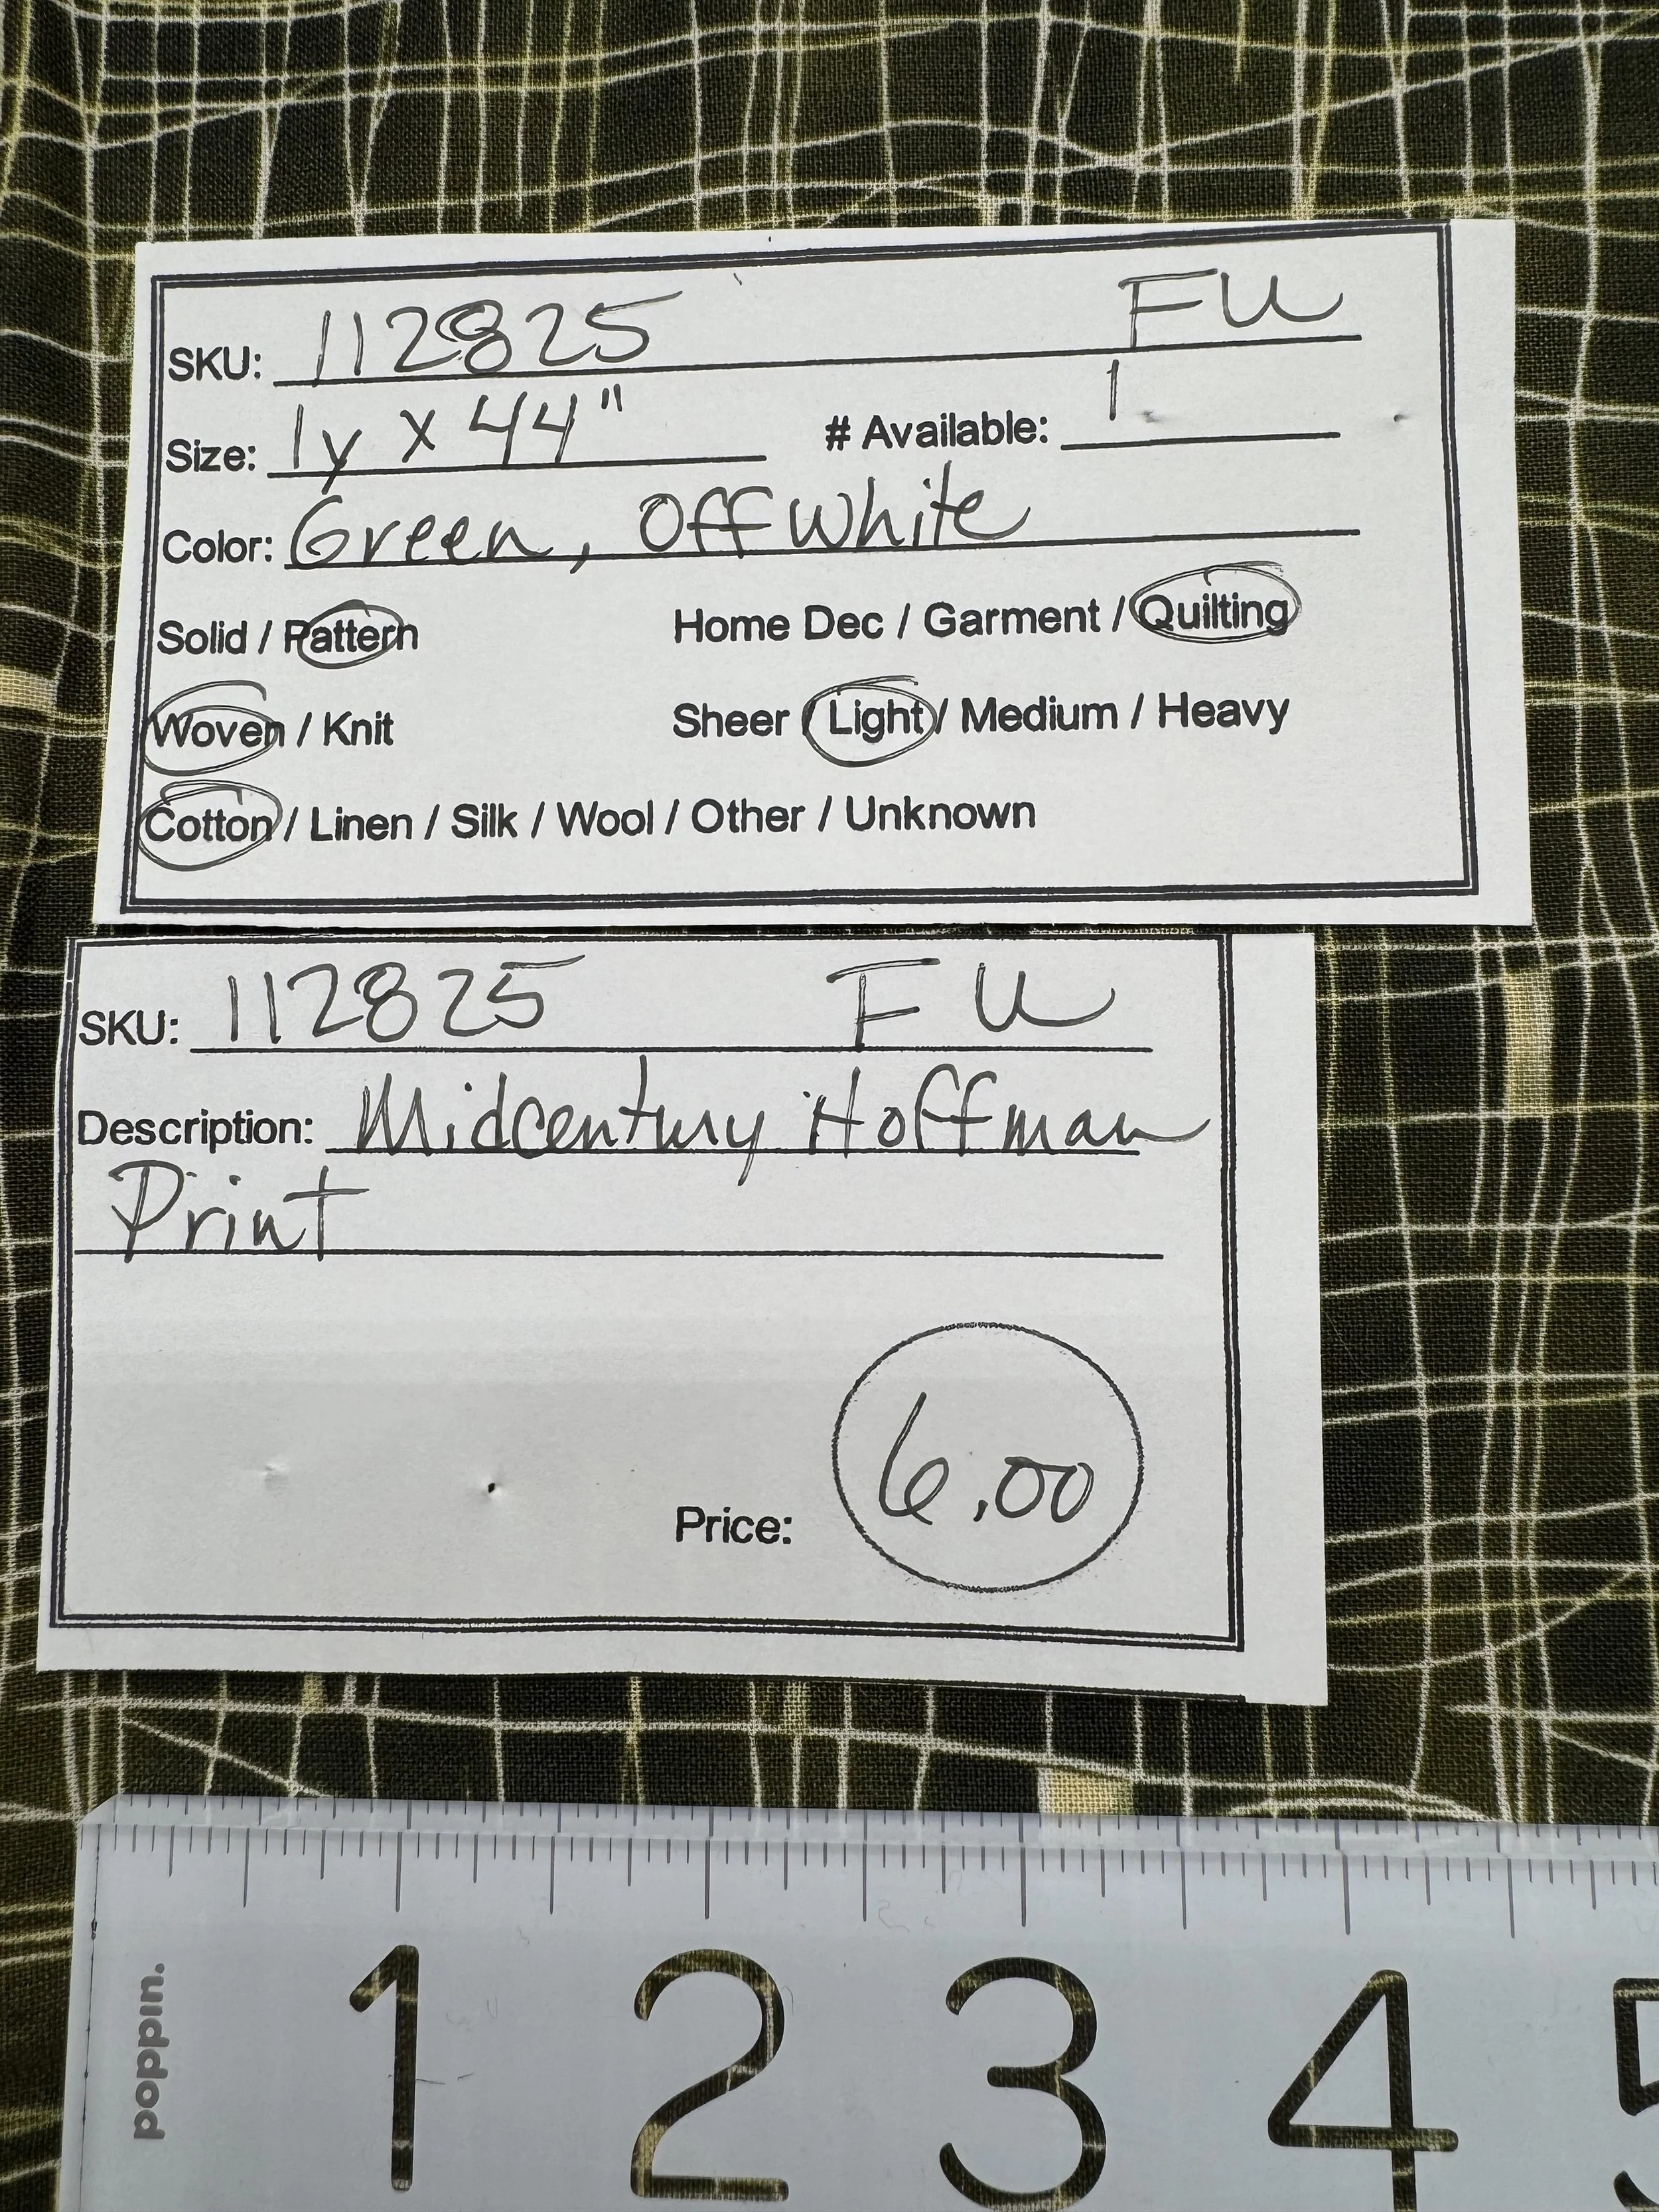 SKU: 112825 FU
Size: 1y x 44" # Available: 1
Color: Green, Off white
Solid / Pattern Home Dec / Garment / Quilting
Woven / Knit Sheer / Light / Medium / Heavy
Cotton / Linen / Silk / Wool / Other / Unknown
SKU: 112825 FU
Description: Midcentury Hoffman
Print
Price: 6.00
poppin.
1 2 3 4 5